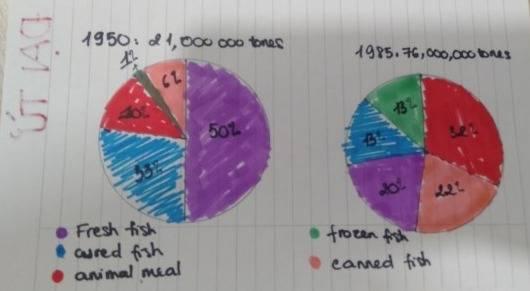 ÚT IAD
1950: 21,000 000 tones
1985. 76,000,000 tones
1%
6%
50%
33%
10%
13%
32%
13%
20%
22%
Fresh fish
cured fish
animal meal
frozen fish
canned fish